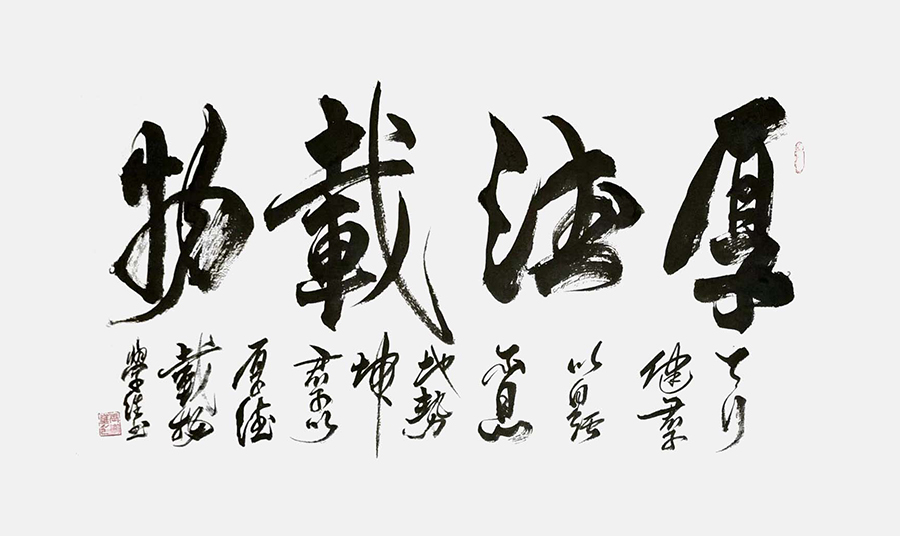 厚德載物
天行
健君子
以自強
不息
地勢
坤
君子以
厚德
載物